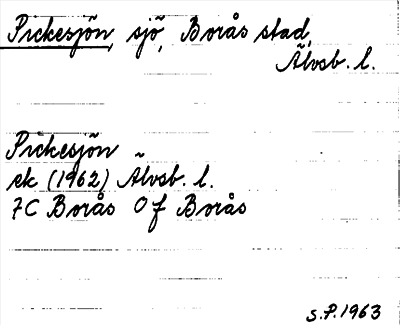 Pickesjön, sjö, Borås stad,
Älvsb. l.
Pickesjön
ek (1962) Älvsb. l.
7C Borås Of Borås
S.P. 1963